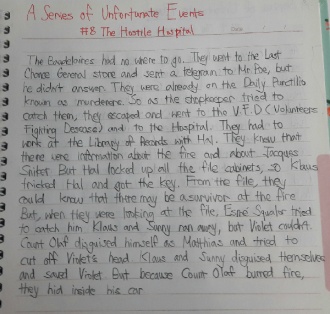 A Series of Unfortunate Events
#8 The Hostile Hospital
Date
The Baudelaires had no where to go. They went to the Last
Chance General store and sent a telegram to Mr Poe, but
he didn't answer. They were already on the Daily Punctilio
known as murderers. So as the shopkeeper tried to
catch them, they escaped and went to the V.F.D (Volunteers
Fighting Disease) and to the Hospital. They had to
work at the Library of Records with Hal. They knew that
there were information about the fire and about Jacques
Snicket. But Hal locked up all the file cabinets, so Klaus
tricked Hal and got the key. From the file, they
could know that there may be a survivor at the fire
But, when they were looking at the file, Esmé Squalor tried
to catch him. Klaus and Sunny ran away, but Violet couldn't.
Count Olaf disguised himself as Matthias and tried to
cut off Violet's head. Klaus and Sunny disguised themselves
and saved Violet. But because Count Olaf burned fire,
they hid inside his car